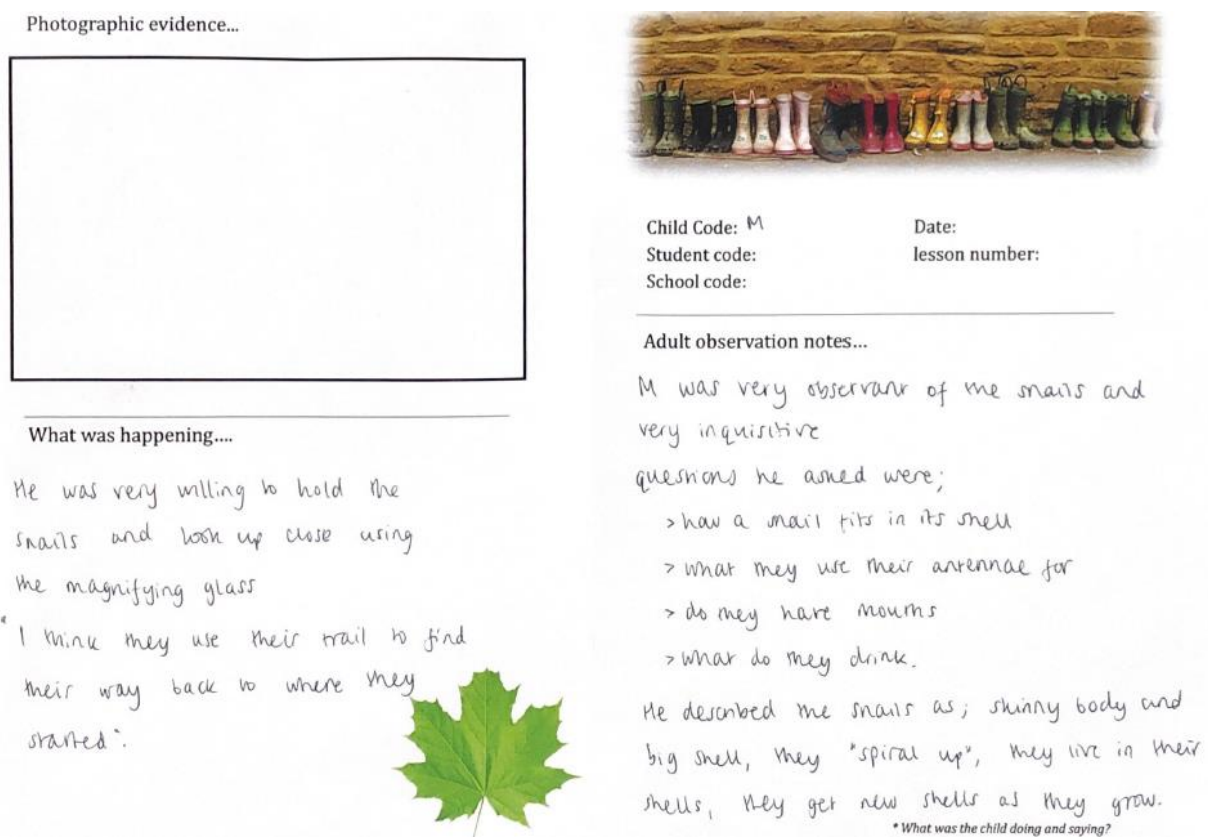 Photographic evidence...
What was happening....
He was very willing to hold the
snails and look up close using
the magnifying glass
"I think they use their trail to find
their way back to where they
started".
Child Code: M
Date:
Student code:
lesson number:
School code:
Adult observation notes...
M was very observant of the snails and
very inquisitive
questions he asked were;
> how a snail fits in its shell
> what they use their antennae for
> do they have mouths
> what do they drink.
He described the snails as; skinny body and
big shell, they "spiral up", they live in their
shells, they get new shells as they grow.
* What was the child doing and saying?